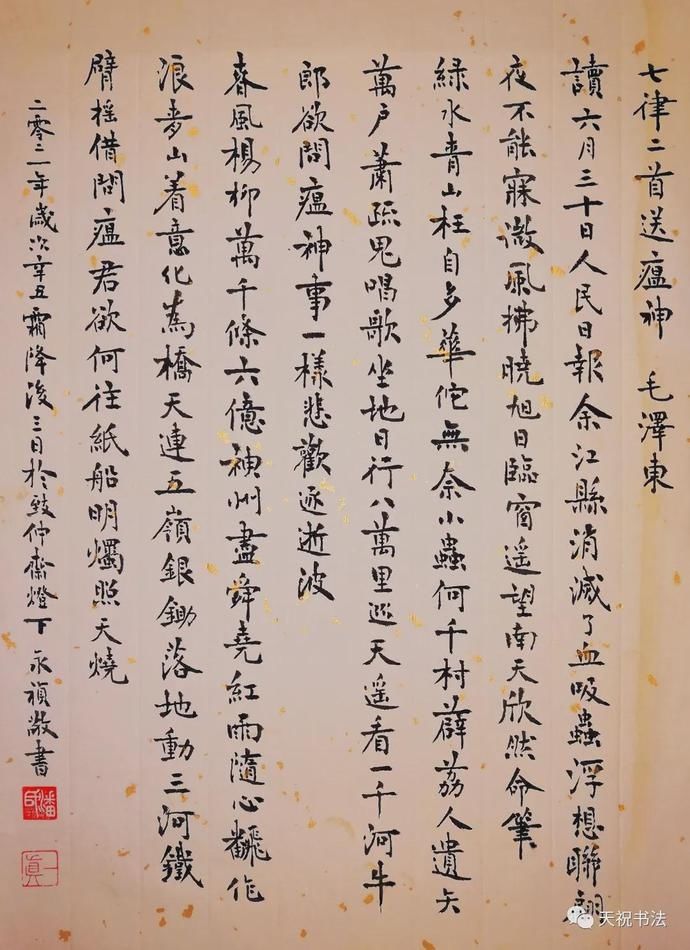 七律二首送瘟神 毛澤東
讀六月三十日人民日報余江縣消滅了血吸蟲浮想聯翩
夜不能寐微風拂曉旭日臨窗遥望南天欣然命筆
緑水青山枉自多華佗無奈小蟲何千村薜荔人遺矢
萬户蕭疏鬼唱歌坐地日行八萬里巡天遥看一千河牛
郎欲問瘟神事一樣悲歡逐逝波
春風楊柳萬千條六億神州盡舜堯紅雨隨心飜作
浪青山着意化為橋天連五嶺銀鋤落地動三河鐵
臂摇借問瘟君欲何往紙船明燭照天燒
二零二一年歲次辛丑霜降後三日於致仲齋燈下永禎敬書
天祝书法